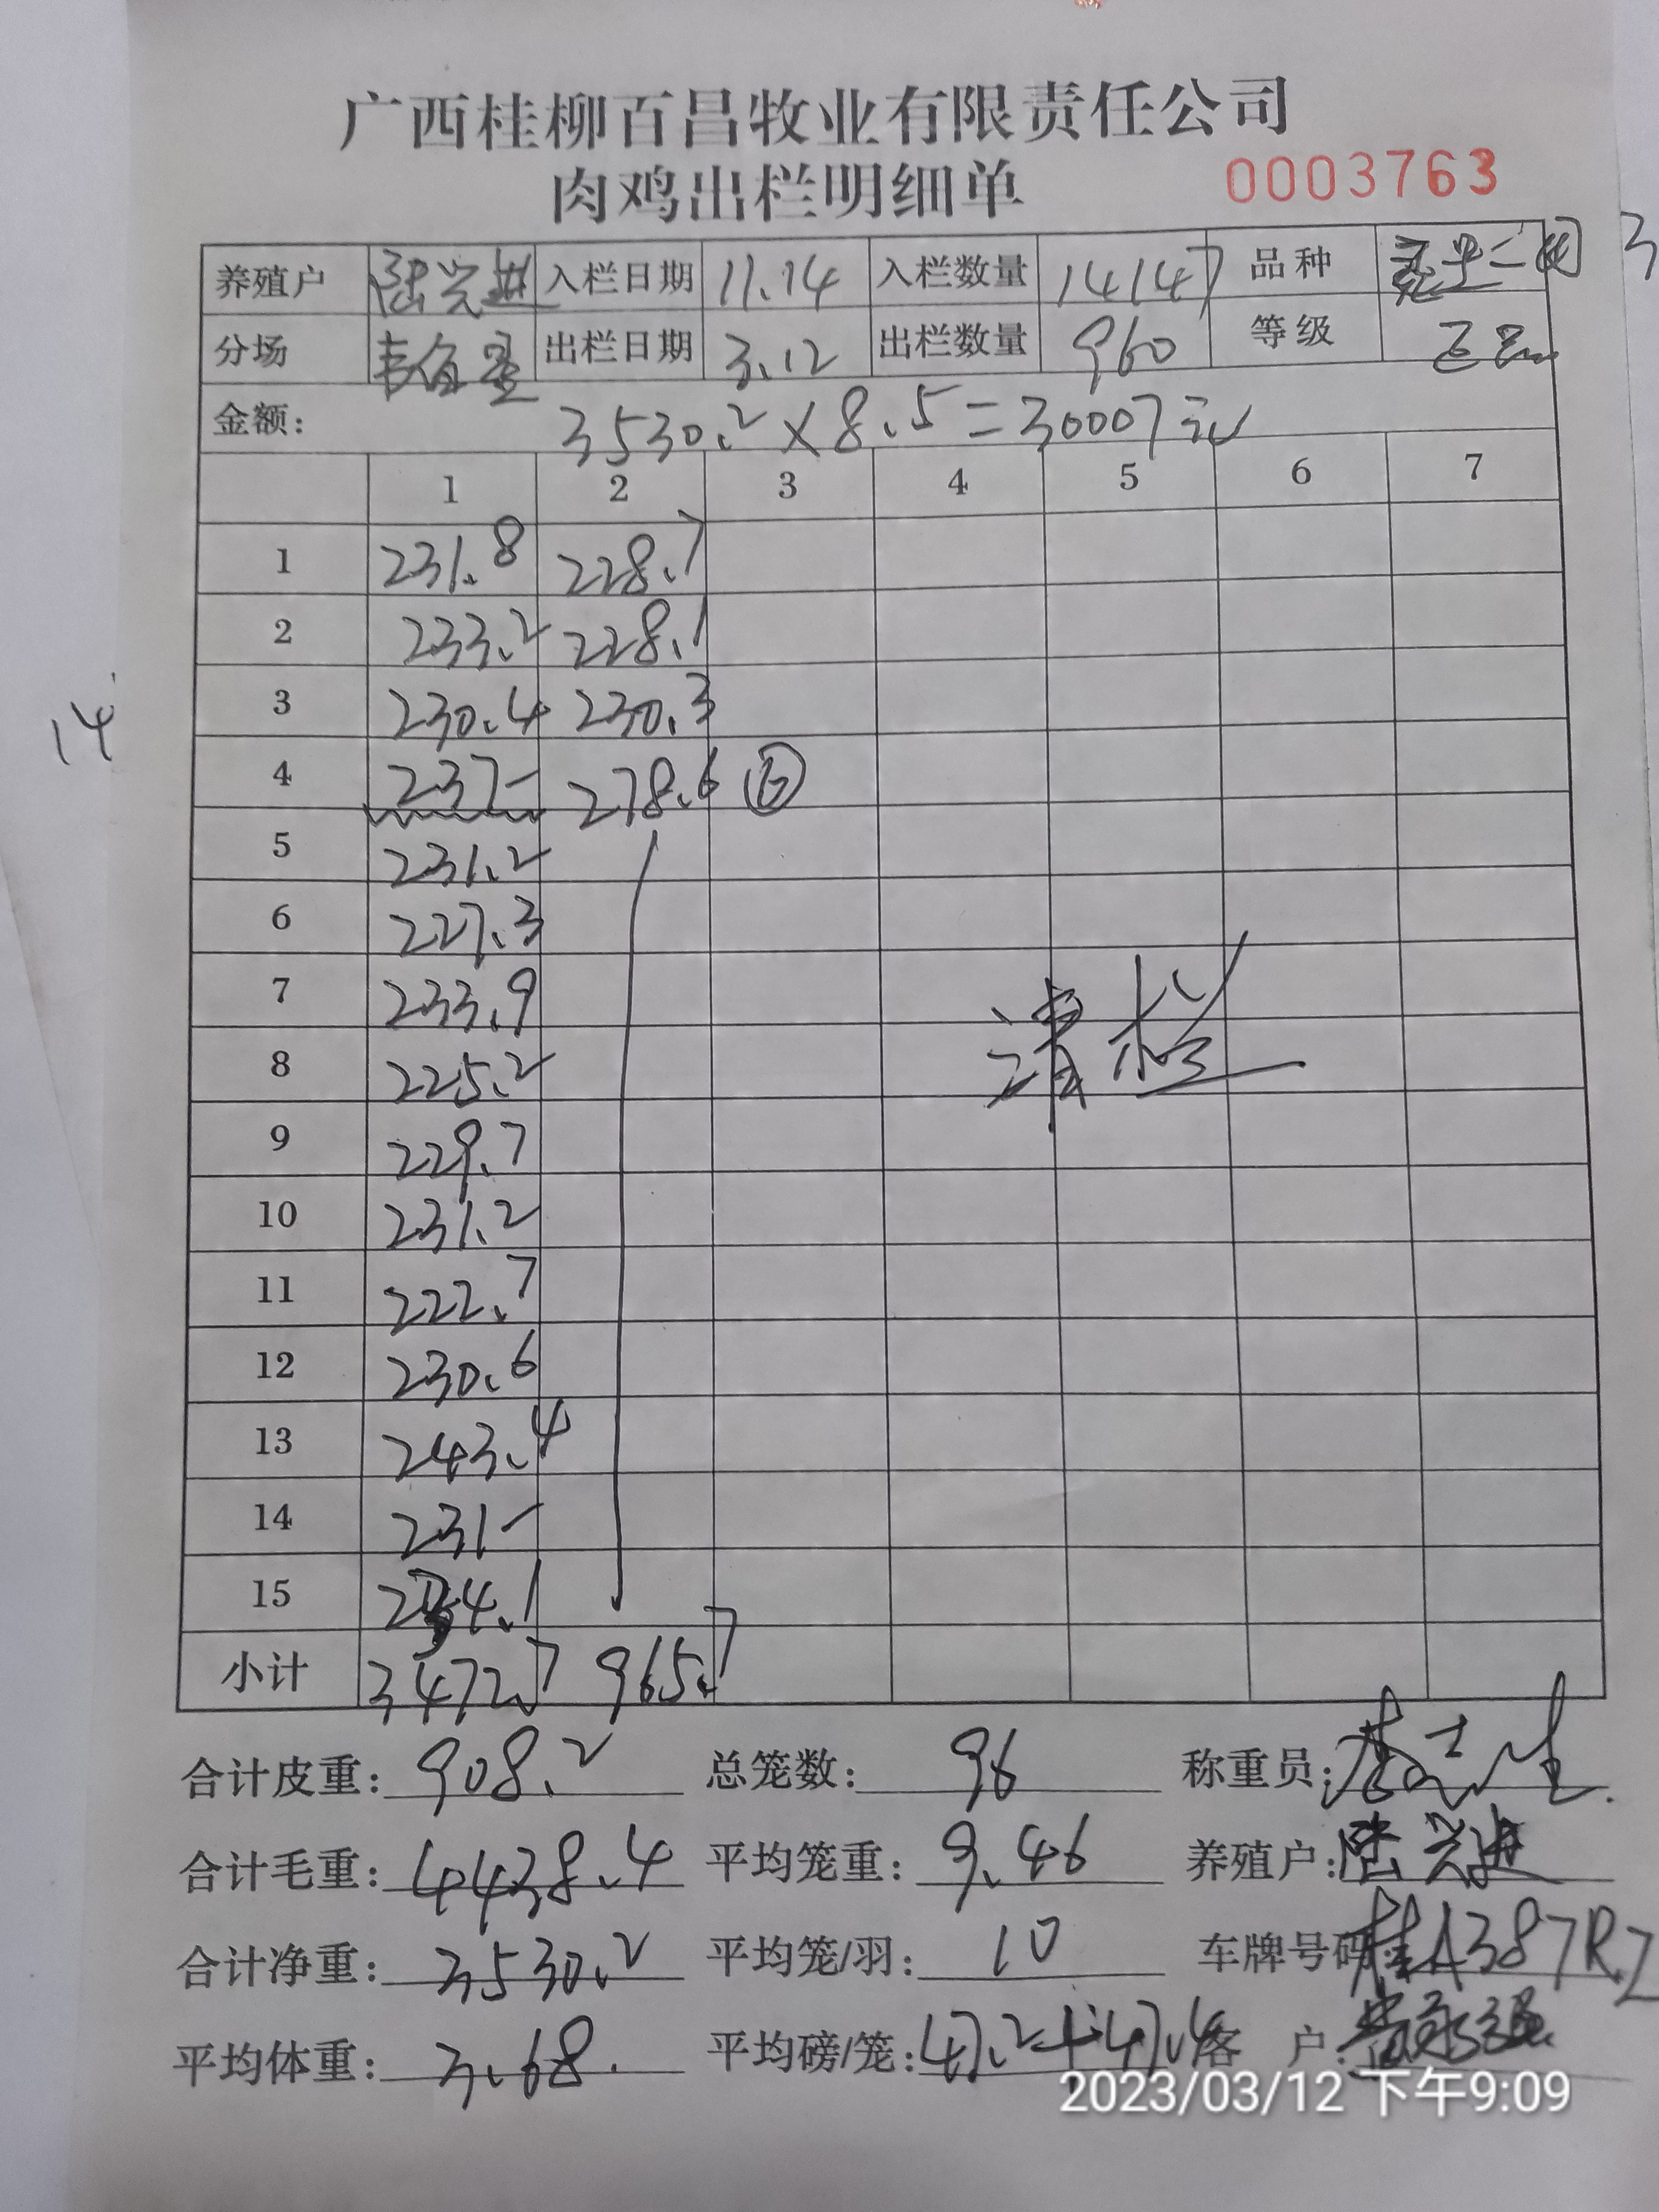 广西桂柳百昌牧业有限责任公司
肉鸡出栏明细单 0003763
养殖户 陆兴进 入栏日期 11.14 入栏数量 14147 品种
分场 出栏日期 3.12 出栏数量 960 等级
金额: 3530.2×8.5=30007元
1 2 3 4 5 6 7
1 231.8 228.7
2 233.2 228.1
3 230.4 230.3
14
4 237- 278.6 ⑥
5 231.2
6 227.3
7 233.9
8 225.2
清栏
9 229.7
10 231.2
11 222.7
12 230.6
13 243.4
14 231-
15 234.1
小计 3472.7 965.7
合计皮重: 908.2 总笼数: 96 称重员:
合计毛重: 4438.4 平均笼重: 9.46 养殖户: 陆兴进
合计净重: 3530.2 平均笼/羽: 10 车牌号码: 桂A387RZ
平均体重: 3.68. 平均磅/笼: 47.2+47.4 客户:
2023/03/12 下午9:09